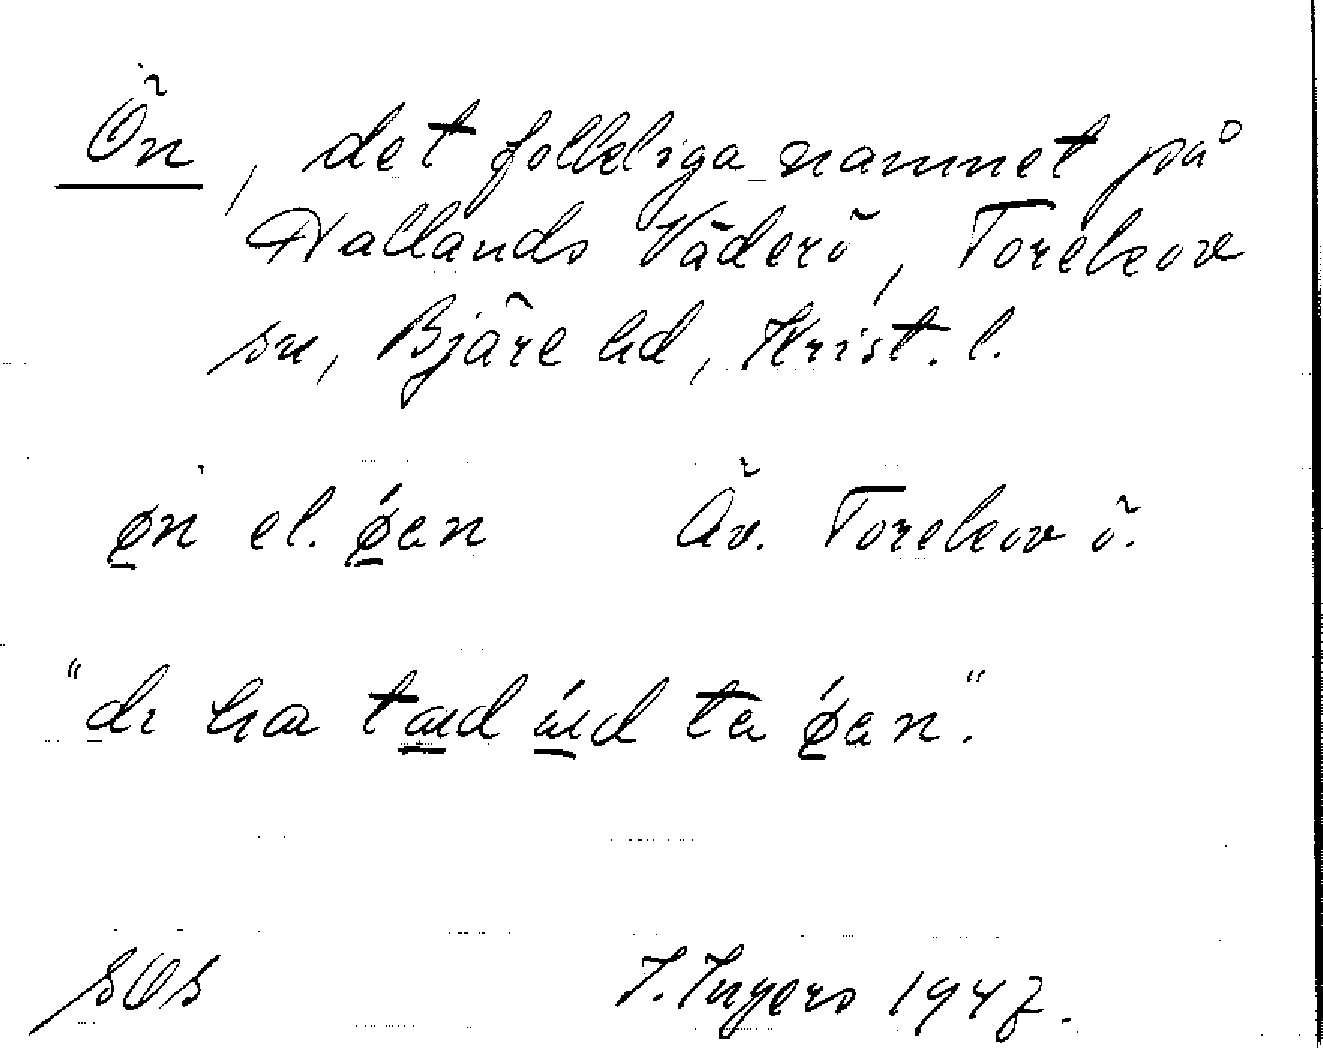 Ön, det folkliga namnet på
Hallands Väderö, Torekov
sn, Bjäre hd, Krist. l.
øn el. øen Äv. Torekov ö.
"di ha tæd úd te øen."
SOS I. Ingers 1947.